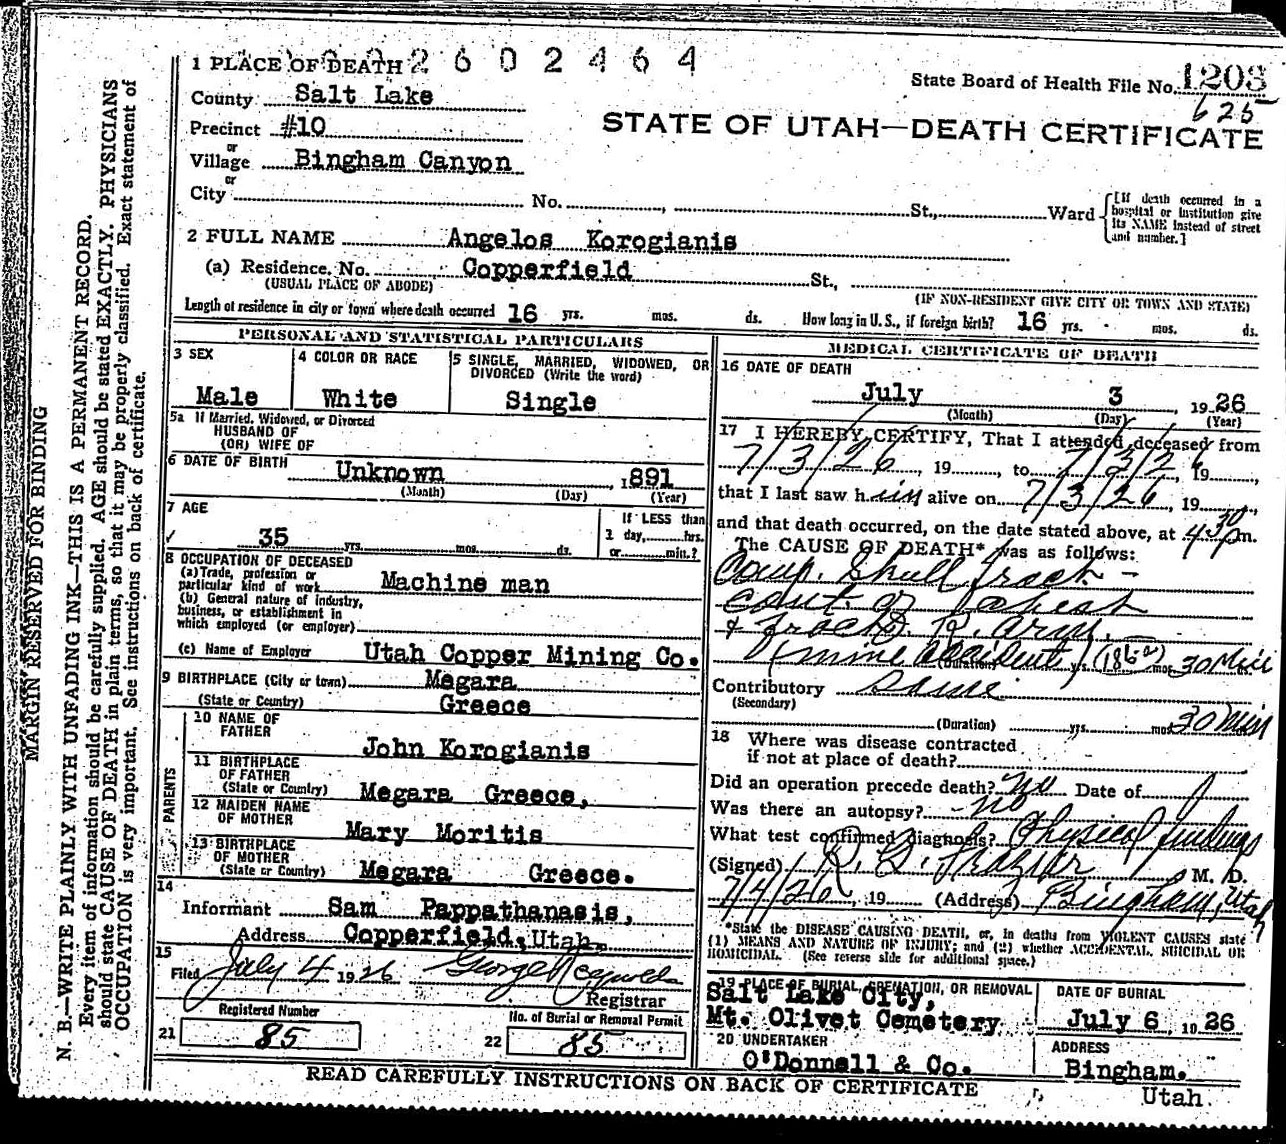 1 PLACE OF DEATH 2602464
State Board of Health File No. 1203
625
County Salt Lake
STATE OF UTAH—DEATH CERTIFICATE
Precinct #10
or
Village Bingham Canyon
or
City No. , St., Ward
[If death occurred in a hospital or institution give its NAME instead of street and number.]
2 FULL NAME Angelos Korogianis
(a) Residence. No. Copperfield St.,
(USUAL PLACE OF ABODE) (IF NON-RESIDENT GIVE CITY OR TOWN AND STATE)
Length of residence in city or town where death occurred 16 yrs. mos. ds. How long in U. S., if foreign birth? 16 yrs. mos. ds.
PERSONAL AND STATISTICAL PARTICULARS
3 SEX
Male
4 COLOR OR RACE
White
5 SINGLE, MARRIED, WIDOWED, OR
DIVORCED (Write the word)
Single
5a If Married, Widowed, or Divorced
HUSBAND OF
(OR) WIFE OF
6 DATE OF BIRTH Unknown , 1891
(Month) (Day) (Year)
7 AGE
35 yrs. mos. ds.
If LESS than
1 day, hrs.
or min.?
8 OCCUPATION OF DECEASED
(a) Trade, profession or
particular kind of work Machine man
(b) General nature of industry,
business, or establishment in
which employed (or employer)
(c) Name of Employer Utah Copper Mining Co.
9 BIRTHPLACE (City or town) Megara
(State or Country) Greece
PARENTS
10 NAME OF
FATHER John Korogianis
11 BIRTHPLACE
OF FATHER
(State or Country) Megara Greece,
12 MAIDEN NAME
OF MOTHER Mary Moritis
13 BIRTHPLACE
OF MOTHER
(State or Country) Megara Greece.
14
Informant Sam Pappathanasis,
Address Copperfield, Utah.
15
Filed July 4 1926 George
Registrar
Registered Number
21 85
No. of Burial or Removal Permit
22 85
MEDICAL CERTIFICATE OF DEATH
16 DATE OF DEATH
July 3 , 1926
(Month) (Day) (Year)
17 I HEREBY CERTIFY, That I attended deceased from
7/3/26 , 19 , to 7/3/26 19 ,
that I last saw him alive on 7/3/26 , 19 ,
and that death occurred, on the date stated above, at 4 30 pm.
The CAUSE OF DEATH* was as follows:
Comp. Skull fract -
Cont. of
& Fract. R. arm. -
(mine accident) (Duration) yrs. mos. 30 Min
Contributory same
(Secondary)
(Duration) yrs. mos. 30 Min
18 Where was disease contracted
if not at place of death?
Did an operation precede death? no Date of
Was there an autopsy? - no
What test confirmed diagnosis? Physical findings
(Signed) R. G. Frazier M. D.
7/4/26 , 19 (Address) Bingham, Utah
*State the DISEASE CAUSING DEATH, or, in deaths from VIOLENT CAUSES state
(1) MEANS AND NATURE OF INJURY; and (2) whether ACCIDENTAL, SUICIDAL OR
HOMICIDAL. (See reverse side for additional space.)
19 PLACE OF BURIAL, CREMATION, OR REMOVAL
Salt Lake City,
Mt. Olivet Cemetery
DATE OF BURIAL
July 6 , 1926
20 UNDERTAKER
O'Donnell & Co.
ADDRESS
Bingham.
Utah.
READ CAREFULLY INSTRUCTIONS ON BACK OF CERTIFICATE
MARGIN RESERVED FOR BINDING
N. B.—WRITE PLAINLY WITH UNFADING INK—THIS IS A PERMANENT RECORD.
Every item of information should be carefully supplied. AGE should be stated EXACTLY. PHYSICIANS
should state CAUSE OF DEATH in plain terms, so that it may be properly classified. Exact statement of
OCCUPATION is very important. See instructions on back of certificate.